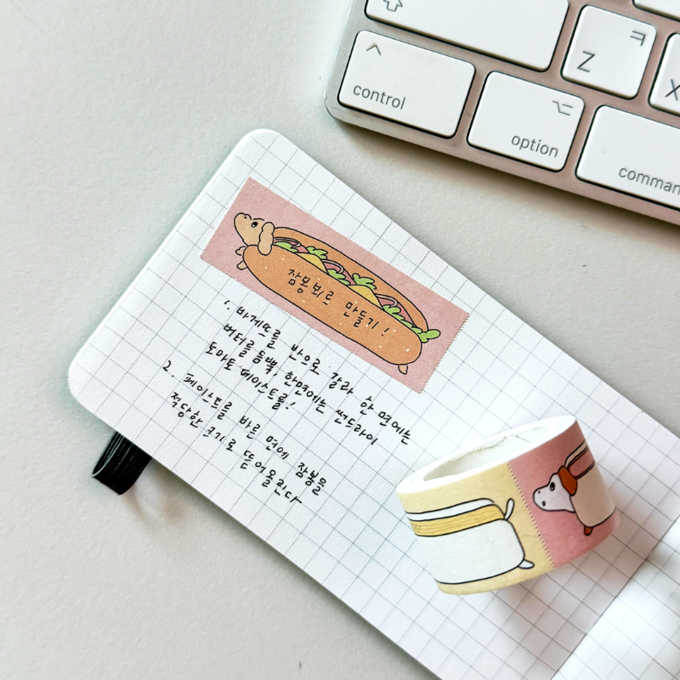 control
option
Z
ㅋ
X
잠봉뵈르 만들기!
1. 바게뜨를 반으로 갈라 한 면에는
버터를 듬뿍, 한면에는 썬드라이
토마토 페이스트를!
2. 페이스트를 바른 면에 잠봉을
적당한 크기로 뜯어 올린다